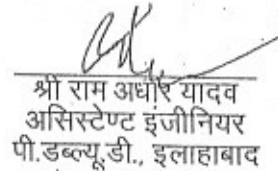 श्री राम अधार यादव
असिस्टेण्ट इंजीनियर
पी.डब्ल्यू.डी., इलाहाबाद